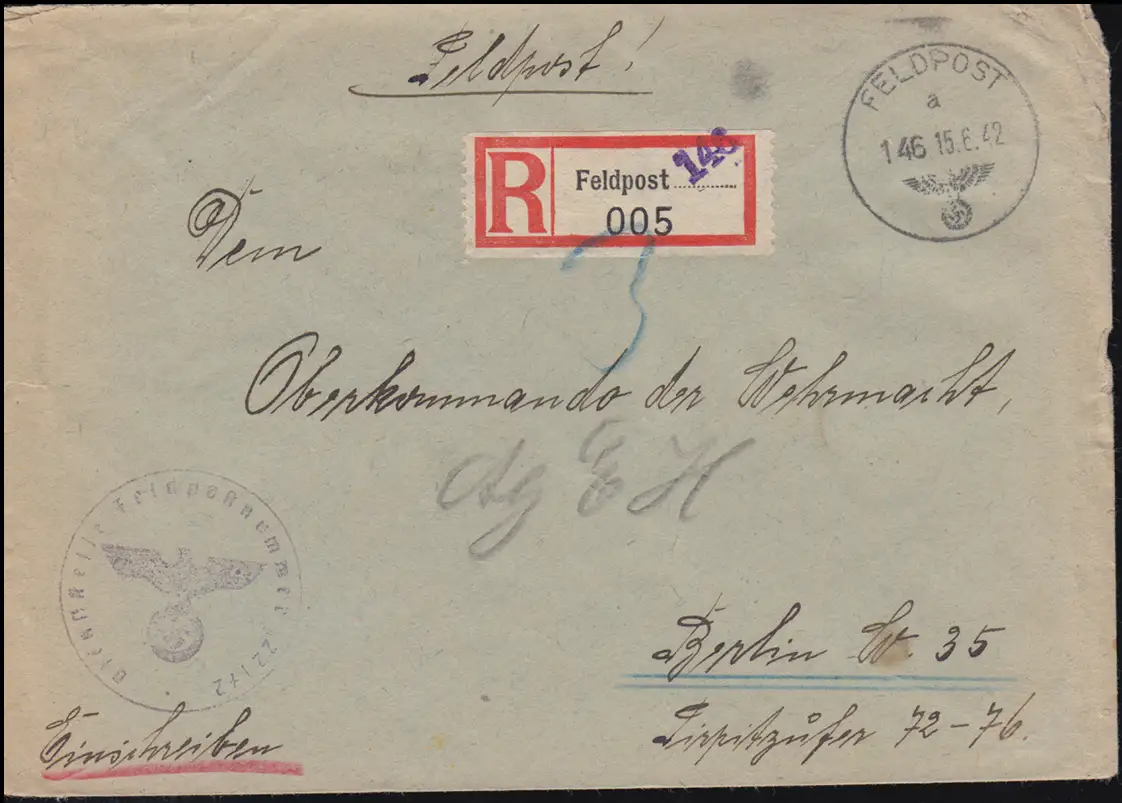 Feldpost!
FELDPOST
a
146 15.6.42
R
Feldpost 146
005
Dem
Oberkommando der Wehrmacht,
Ag E H
Dienststelle Feldpostnummer
Berlin W. 35
Tirpitzufer 72-76.
Einschreiben